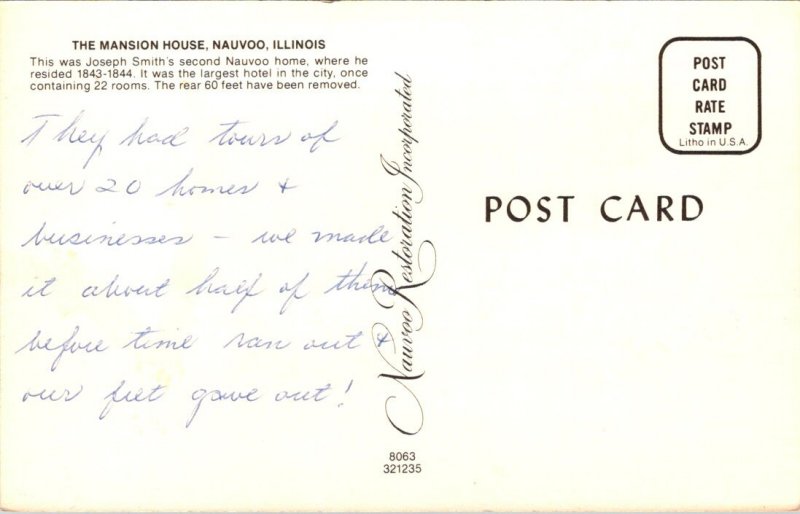 THE MANSION HOUSE, NAUVOO, ILLINOIS
This was Joseph Smith's second Nauvoo home, where he
resided 1843-1844. It was the largest hotel in the city, once
containing 22 rooms. The rear 60 feet have been removed.
They had tours of
over 20 homes +
businesses - we made
it about half of them
before time ran out +
our feet gave out!
Nauvoo Restoration Incorporated
8063
321235
POST
CARD
RATE
STAMP
Litho in U.S.A.
POST CARD